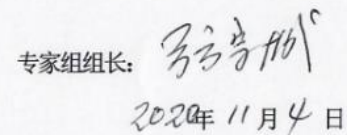 专家组组长:
2020年11月4日